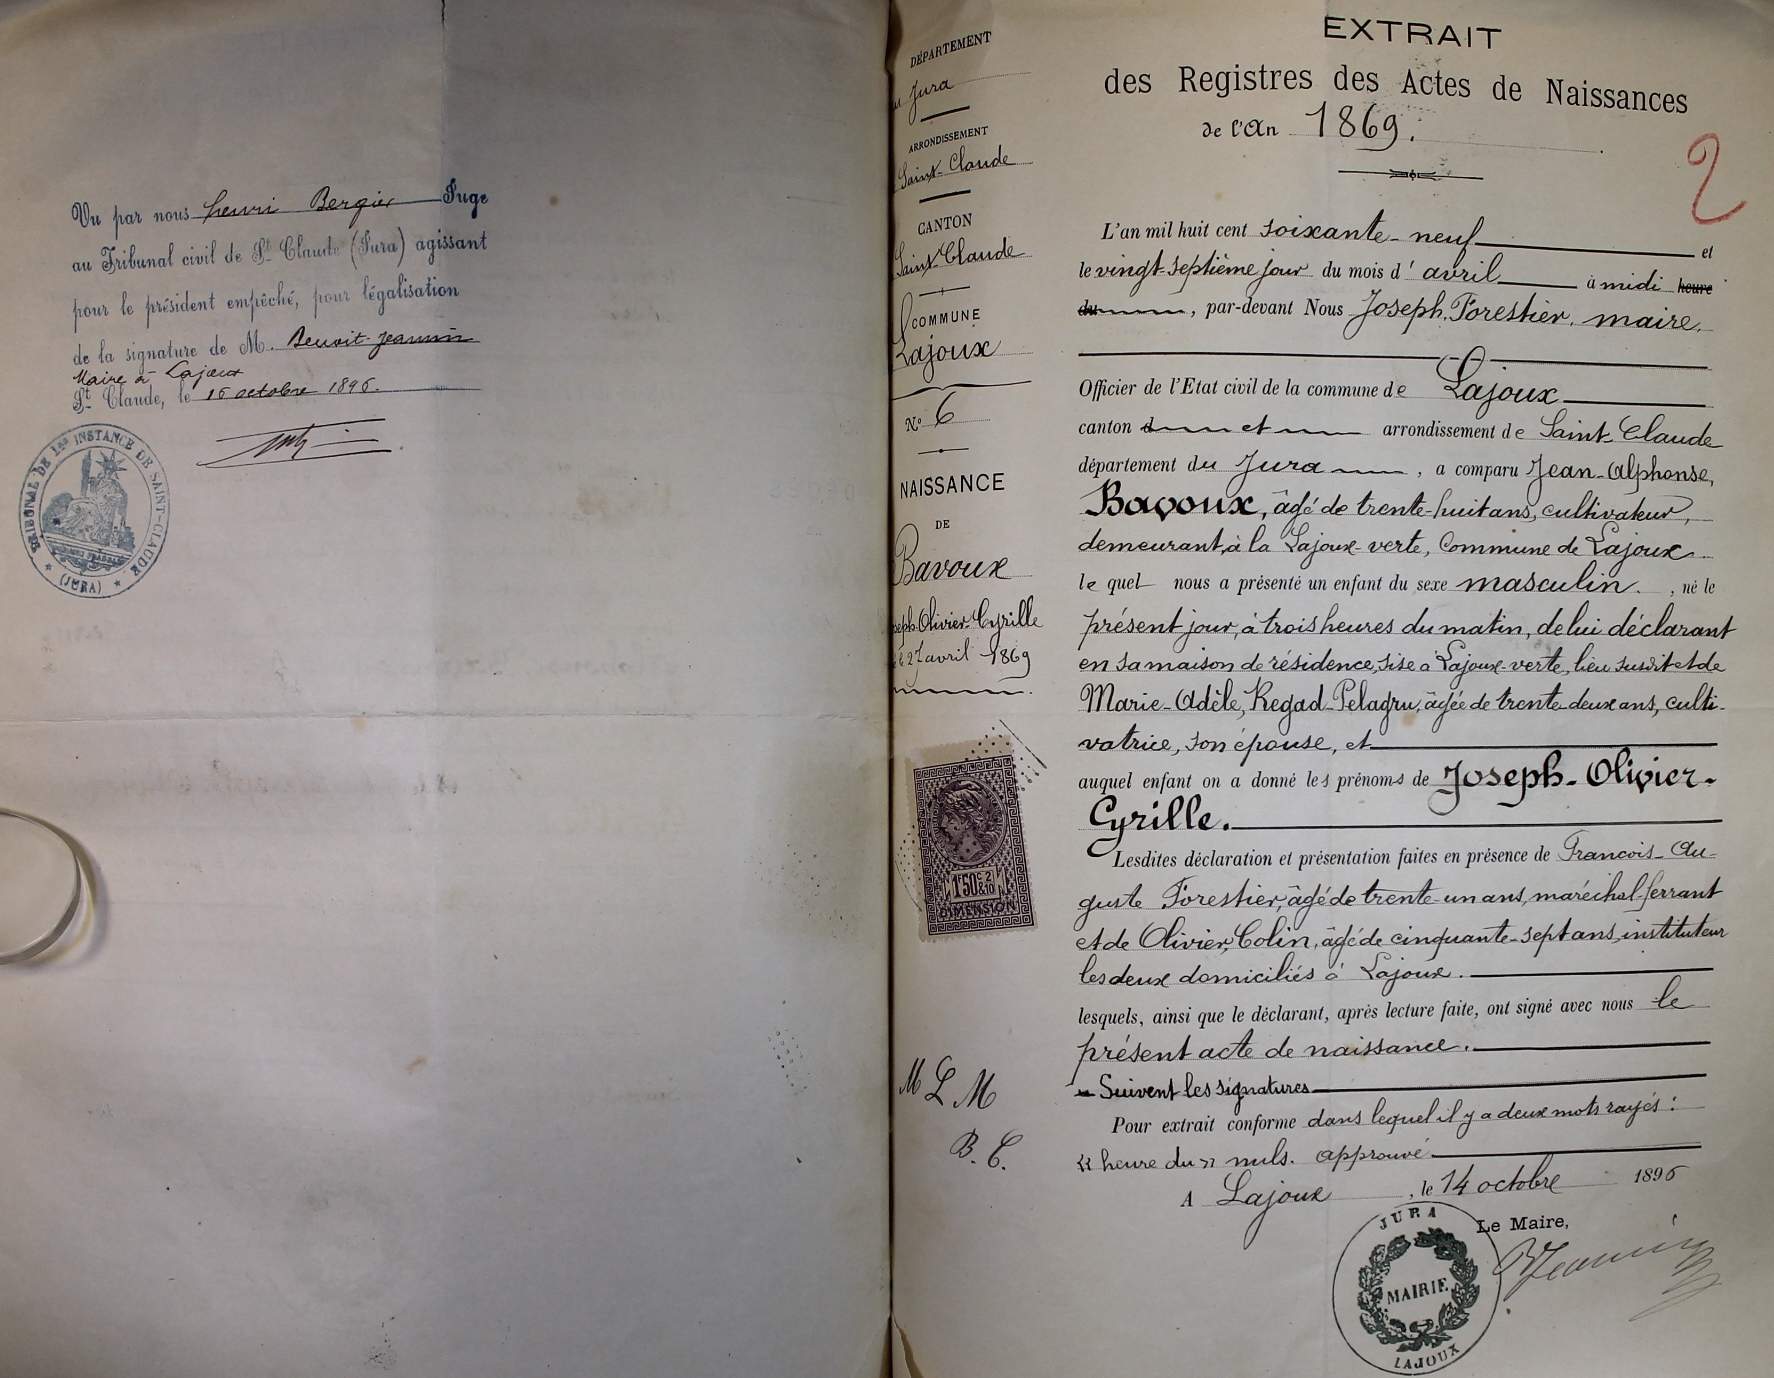 Vu par nous henri Bergier Juge
au Tribunal civil de St Claude (Jura) agissant
pour le président empêché, pour légalisation
de la signature de M. Benoit-Jeannin
Maire à Lajoux
St Claude, le 16 octobre 1896.
TRIBUNAL DE 1re INSTANCE DE SAINT-CLAUDE
* (JURA) *
DÉPARTEMENT
Jura
ARRONDISSEMENT
Saint-Claude
CANTON
Saint-Claude
COMMUNE
Lajoux
No 6
NAISSANCE
DE
Bavoux
seph-Olivier-Cyrille
le 27 avril 1869
1F50c 2/10
DIMENSION
M L M
B. C.
EXTRAIT
des Registres des Actes de Naissances
de l'An 1869.
2
L'an mil huit cent soixante-neuf et
le vingt-septième jour du mois d'avril à midi heure
du, par-devant Nous Joseph, Forestier, maire,
Officier de l'Etat civil de la commune de Lajoux
canton d et arrondissement de Saint-Claude
département du Jura, a comparu Jean-Alphonse,
Bavoux, âgé de trente-huit ans, cultivateur,
demeurant à la Lajoux-verte, Commune de Lajoux
lequel nous a présenté un enfant du sexe masculin., né le
présent jour, à trois heures du matin, de lui déclarant
en sa maison de résidence, sise à Lajoux-verte, lieu susdit et de
Marie-Adèle, Regad-Pelagru, âgée de trente-deux ans, culti-
vatrice, son épouse, et
auquel enfant on a donné les prénoms de Joseph-Olivier-
Cyrille.
Lesdites déclaration et présentation faites en présence de Francois-Au-
guste Forestier, âgé de trente-un ans, maréchal-ferrant
et de Olivier, Colin, âgé de cinquante-sept ans, instituteur
les deux domiciliés à Lajoux.
lesquels, ainsi que le déclarant, après lecture faite, ont signé avec nous le
présent acte de naissance.
- Suivent les signatures
Pour extrait conforme dans lequel il y a deux mots rayés :
« heure du » nuls. approuvé
A Lajoux, le 14 octobre 1896
Le Maire,
BJeannin
JURA
MAIRIE
LAJOUX